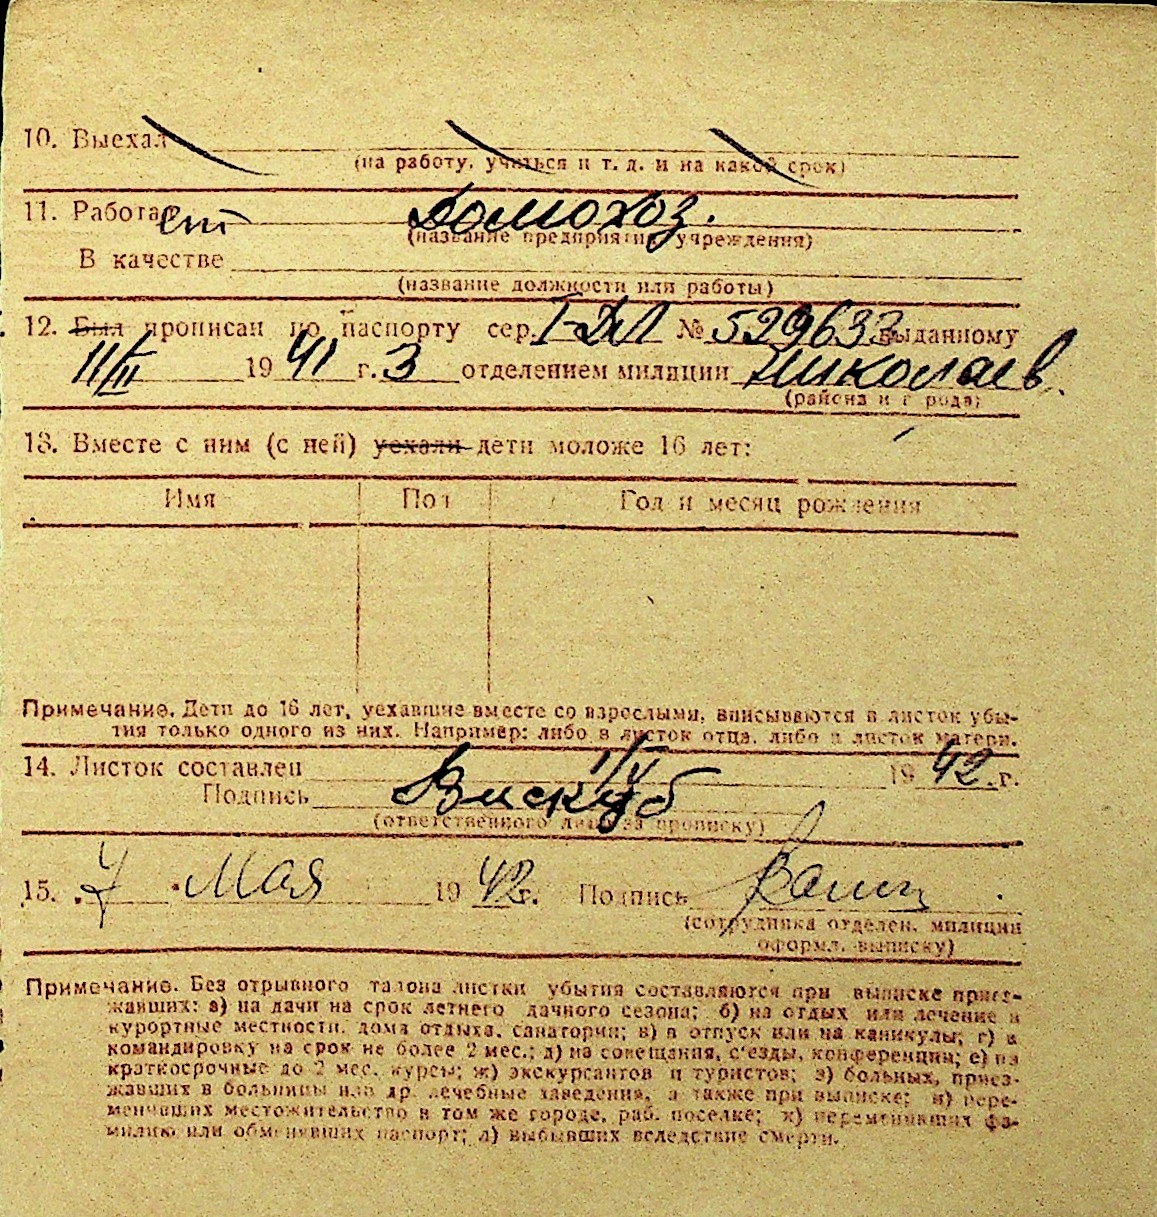 10. Выехал
(на работу, учиться и т. д. и на какой срок)
11. Работает Домохоз.
(название предприятия, учреждения)
В качестве
(название должности или работы)
12. Был прописан по паспорту сер. I-ДЛ № 529633 выданному
11/II 1941 г. 3 отделением милиции Николаев.
(района и города)
13. Вместе с ним (с ней) уехали дети моложе 16 лет:
Имя Пол Год и месяц рождения
Примечание. Дети до 16 лет, уехавшие вместе со взрослыми, вписываются в листок убы-
тия только одного из них. Например: либо в листок отца, либо в листок матери.
14. Листок составлен 1/V 1942 г.
Подпись
(ответственного лица за прописку)
15. 7 Мая 1942 г. Подпись
(сотрудника отделен. милиции
оформл. выписку)
Примечание. Без отрывного талона листки убытия составляются при выписке приез-
жавших: а) на дачи на срок летнего дачного сезона; б) на отдых или лечение в
курортные местности, дома отдыха, санатории; в) в отпуск или на каникулы; г) в
командировку на срок не более 2 мес.; д) на совещания, с'езды, конференции; е) на
краткосрочные до 2 мес. курсы; ж) экскурсантов и туристов; з) больных, приез-
жавших в больницы или др. лечебные заведения, а также при выписке; и) пере-
менивших местожительство в том же городе, раб. поселке; к) переменивших фа-
милию или обменявших паспорт; л) выбывших вследствие смерти.